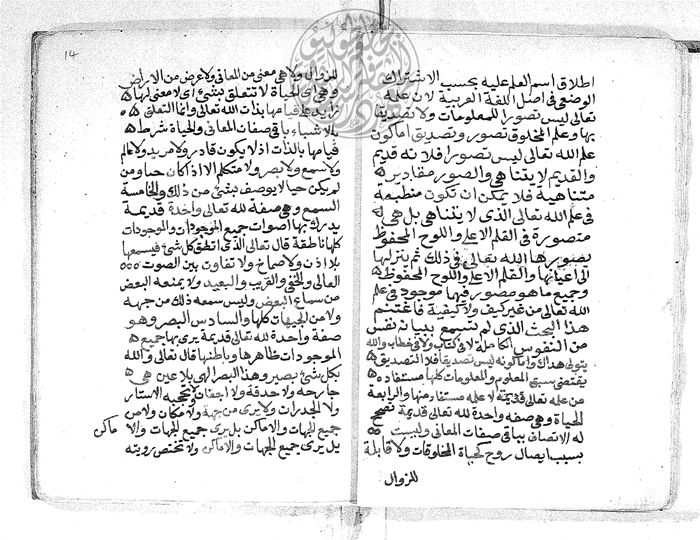 اطلاق اسم العلم عليه بحسب الاشتراك
الوضعي في اصل اللغة العربية لان علمه
تعالى ليس تصورا للمعلومات ولا تصديقا
بها وعلم المخلوق تصور وتصديق اما كون
علم الله تعالى ليس تصورا فلانه قديم
والقديم لا يتناهى والصور مقادير
متناهية فلا يمكن ان تكون منطبعة
في علم الله تعالى الذي لا يتناهى بل هي
متصورة في القلم الاعلى واللوح المحفوظ
يصورها الله تعالى في ذلك ثم ينزلها
الى اعيانها والقلم الاعلى واللوح المحفوظ
وجميع ما هو مصور فيهما موجود في علم
الله تعالى من غير كيف ولا كيفية فاغتنم
هذا البحث الذي لم تسمع ببيانه نفس
من النفوس الكاملة لا في كتاب ولا في خطاب والله
يتولى هداك واما كونه ليس تصديقا فلان التصديق
يقتضي سبق المعلوم والمعلومات كلها مستفاده
من علمه تعالى قديمة لا علمه مستفاد منها والرابعة
الحياة وهي صفه واحدة لله تعالى قديمة تصحح
له الاتصاف بباقي صفات المعاني وليست
بسبب ايصال روح كحياة المخلوقات ولا قابلة
للزوال
14
للزوال ولا هي معنى من المعاني ولا عرض من الاعراض
وهي اي الحياة لا تتعلق بشئ اي لا معنى لها
زايد على قيامها بذات الله تعالى وانما التعلق
بالاشياء باقي صفات المعاني والحياة شرط
قيامها بالذات اذ لا يكون قادر ولا مريد ولا عالم
ولا سميع ولا بصير ولا متكلم الا اذا كان حيا ومن
لم يكن حيا لا يوصف بشئ من ذلك والخامسة
السمع وهي صفة لله تعالى واحدة قديمة
يدرك بها اصوات جميع الموجودات والموجودات
كلها ناطقة قال تعالى الذي انطق كل شئ فيسمعها
بلا اذن ولا صماخ ولا تفاوت بين الصوت
العالي والخفي والقريب والبعيد ولا يمنعه البعض
من سماع البعض وليس سمعه ذلك من جهه
ولا من الجهات كلها والسادس البصر وهو
صفة واحدة لله تعالى قديمة يرى بها جميع
الموجودات ظاهرها وباطنها قال تعالى والله
بكل شئ بصير وهذا البصر الهي بلا عين هي
جارحه ولا حدقة ولا اجفان ولا تحجبه الاستار
ولا الجدران ولا يرى من جهة ولا مكان ولا من
جميع الجهات والاماكن بل يرى جميع الجهات والاماكن
بل يرى جميع الجهات والاماكن ولا تختص رويته